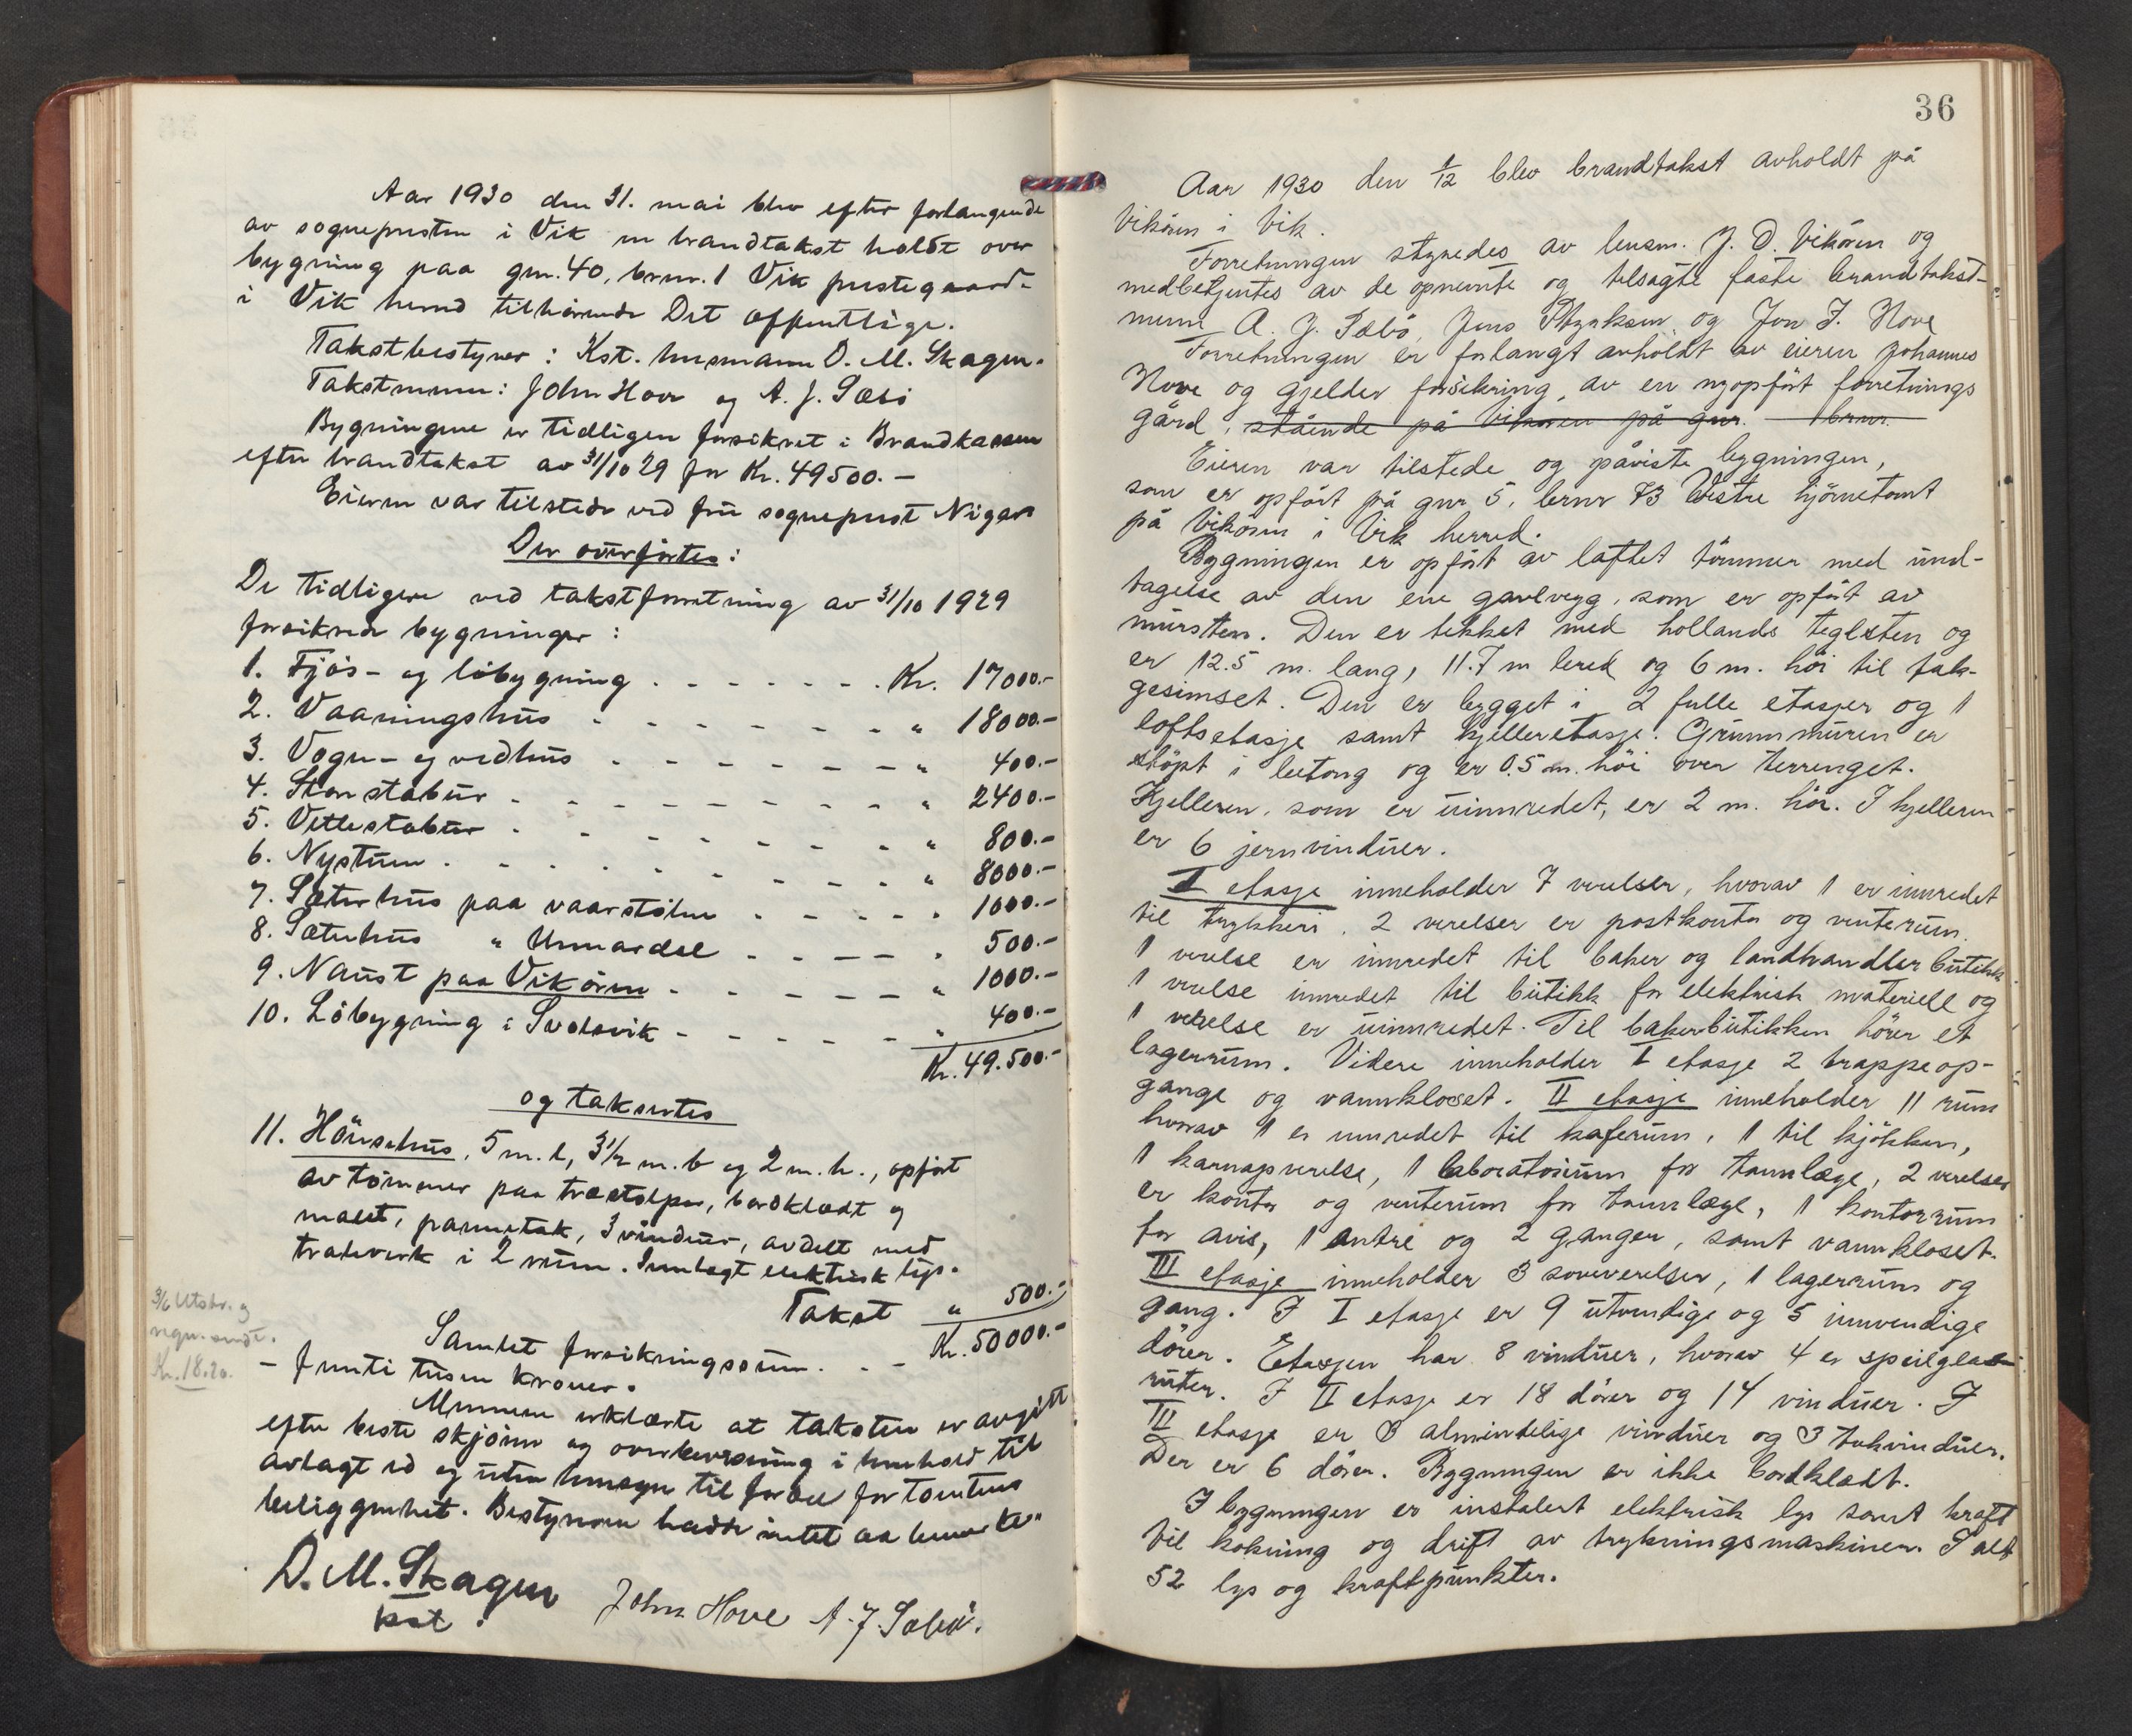 Aar 1930 den 31. mai blev efter forlangende
av sognepresten i Vik en brandtakst holdt over
bygning paa gnr. 40, brnr. 1 Vik prestegaard
i Vik herred tilhørende Det offentlige.
Takstbestyrer: Kst. lensmann O. M. Skagen.
Takstmenn: John Hove og A. J. Sæbö
Bygningene er tidligere forsikret i Brandkassen
efter brandtakst av 31/10 29 for Kr. 49500.-
Eieren var tilstede ved fru sogneprest Nigard
Der overførtes:
De tidligere ved takstforretning av 31/10 1929
forsikrede bygninger:
1. Fjös- og löbygning . . . . . . . Kr. 17000.-
2. Vaaningshus - - - - - - - " 18000.-
3. Vogn- og vedhus - - - - - - " 400.-
4. Storstabur - - - - - - - - " 2400.-
5. Vetlestabur - - - - - - - " 800.-
6. Nystuen - - - - - - - - " 8000.-
7. Sæterhus paa vaarstölen - - - - " 1000.-
8. Sæterhus " - - - - - 500.-
9. Naust paa Vikören - - - - - " 1000.-
10. Löbygning i - - - - - " 400.-
Kr. 49.500.-
og taksertes
11. Hönsehus, 5 m. l, 3 1/2 m. b og 2 m. h., opfört
av tömmer paa træstolper, bordklædt og
malt, pannetak, 3 vinduer, avdelt med
tralverk i 2 rum. Innlagt elektrisk lys.
Takst " 500.-
Samlet forsikringssum . - - Kr. 50000.-
- femti tusen kroner.
3/6 Utskr. og
regn. sendt.
Kr. 18.20.
Mennene erklærte at taksten er avgitt
efter beste skjönn og overbevisning i henhold til
avlagt ed og uten hensyn til fordel for tomtens
beliggenhet. Bestyreren hadde intet aa bemerke.
O. M. Skagen
kst.
John Hove A. J. Sæbö.
36
Aar 1930 den 1/12 blev brandtakst avholdt på
Vikören i Vik.
Forretningen styredes av lensm. J. O. Vikören og
medbetjentes av de opnevnte og tilsagte faste brandtakst-
menn A. J. Sæbö, Jens og Jon J. Hove
Forretningen er forlangt avholdt av eieren Johannes
Hove og gjelder forsikring av en nyopfört forretnings
gård, stående på Vikören på gnr. — brnr.
Eieren var tilstede og påviste bygningen,
som er opfört på gnr 5, brnr 73 Vestre hjörnetomt
på Vikören i Vik herred.
Bygningen er opfört av laftet tömmer med und-
tagelse av den ene gavlvegg, som er opfört av
mursten. Den er tekket med hollandsk teglsten og
er 12.5 m. lang, 11.7 m bred og 6 m. höi til tak-
gesimset. Den er bygget i 2 fulle etasjer og 1
loftsetasje samt kjelleretasje. Grunnmuren er
stöpt i betong og er 0.5 m. höi over terrenget.
Kjelleren, som er uinnredet, er 2 m. höi. I kjelleren
er 6 jernvinduer.
I etasje inneholder 7 verelser, hvorav 1 er innredet
til trykkeri, 2 verelser er postkontor og venterum.
1 verelse er innredet til baker og landhandler butikk
1 verelse innredet til butikk for elektrisk materiell og
1 verelse er uinnredet. Til bakerbutikken hörer et
lagerrum. Videre inneholder I etasje 2 trappeop-
gange og vannkloset. II etasje inneholder 11 rum
hvorav 1 er innredet til kaferum, 1 til kjökken,
1 karnapverelse, 1 laboratorium for tannlæge, 2 verelser
er kontor og venterum for tannlæge, 1 kontorrum
for avis, 1 entre og 2 ganger, samt vannkloset.
III etasje inneholder 3 soveverelser, 1 lagerrum og
gang. I I etasje er 9 utvendige og 5 innvendige
dörer. Etasjen har 8 vinduer, hvorav 4 er speilglass-
ruter. I II etasje er 18 dörer og 14 vinduer. I
III etasje er 3 almindelige vinduer og 3 takvinduer.
Der er 6 dörer. Bygningen er ikke bordklædt.
I bygningen er instalert elektrisk lys samt kraft
til kokning og drift av trykningsmaskiner. I alt
52 lys og kraftpunkter.